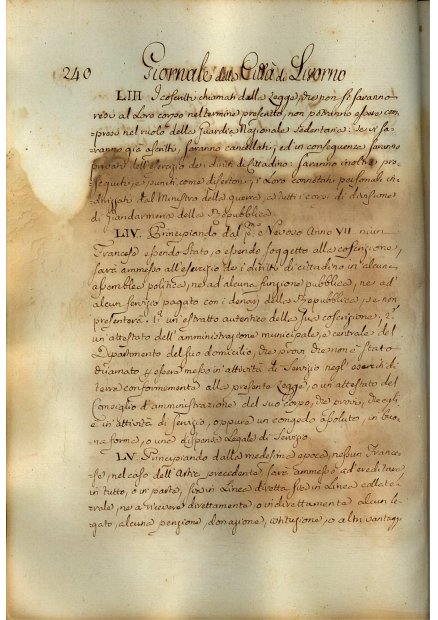 240 Giornale della Città di Livorno
LIII I coscritti chiamati dalla Legge, che non si saranno
resi al Loro corpo nel termine prescritto, non potranno essere com-
presi nel ruolo della Guardia Nazionale Sedentaria. Se vi sa-
ranno già ascritti, saranno cancellati; ed in conseguenza saranno
privati dell'esercizio dei diritti di Cittadino. Saranno inoltre pro-
seguiti, e puniti come disertori; i Loro connotati personali
dal Ministro della guerra, a tutti i corpi di divisione
di Giandarmeria della Repubblica
LIV. Principiando dal p.mo Nevoso Anno VII niun
Francese essendo Stato, o essendo soggetto alla coscrizione,
sarà ammesso all'esercizio dei diritti di cittadino in alcuna
assemblea politica, ne ad alcuna funzione pubblica, ne ad
alcun servizio pagato con i denari della Repubblica, se non
presenterà. 1.o un estratto autentico della sua coscrizione, 2.o
un attestato dell'amministrazione municipale, e centrale del
Dipartimento del suo domicilio, che provi che non è stato
chiamato essere messo in attività di Servizio negl'eserciti di
terra conformemente alla presente Legge, o un attestato del
Consiglio d'amministrazione del suo corpo, che provi, che egli
è in attività di servizio, oppure un congedo assoluto, in buo-
na forma, o una dispensa Legale di Servizio
LV. Principiando dalla medesima epoca, nessun France-
se, nel caso dell'Art.o precedente sarà ammesso ad ereditare
in tutto, o in parte, sia in Linea diretta, sia in Linea collate-
rale, ne a ricevere direttamente, o indirettamente alcun le-
gato, alcuna pensione, donazione, o altri vantaggi